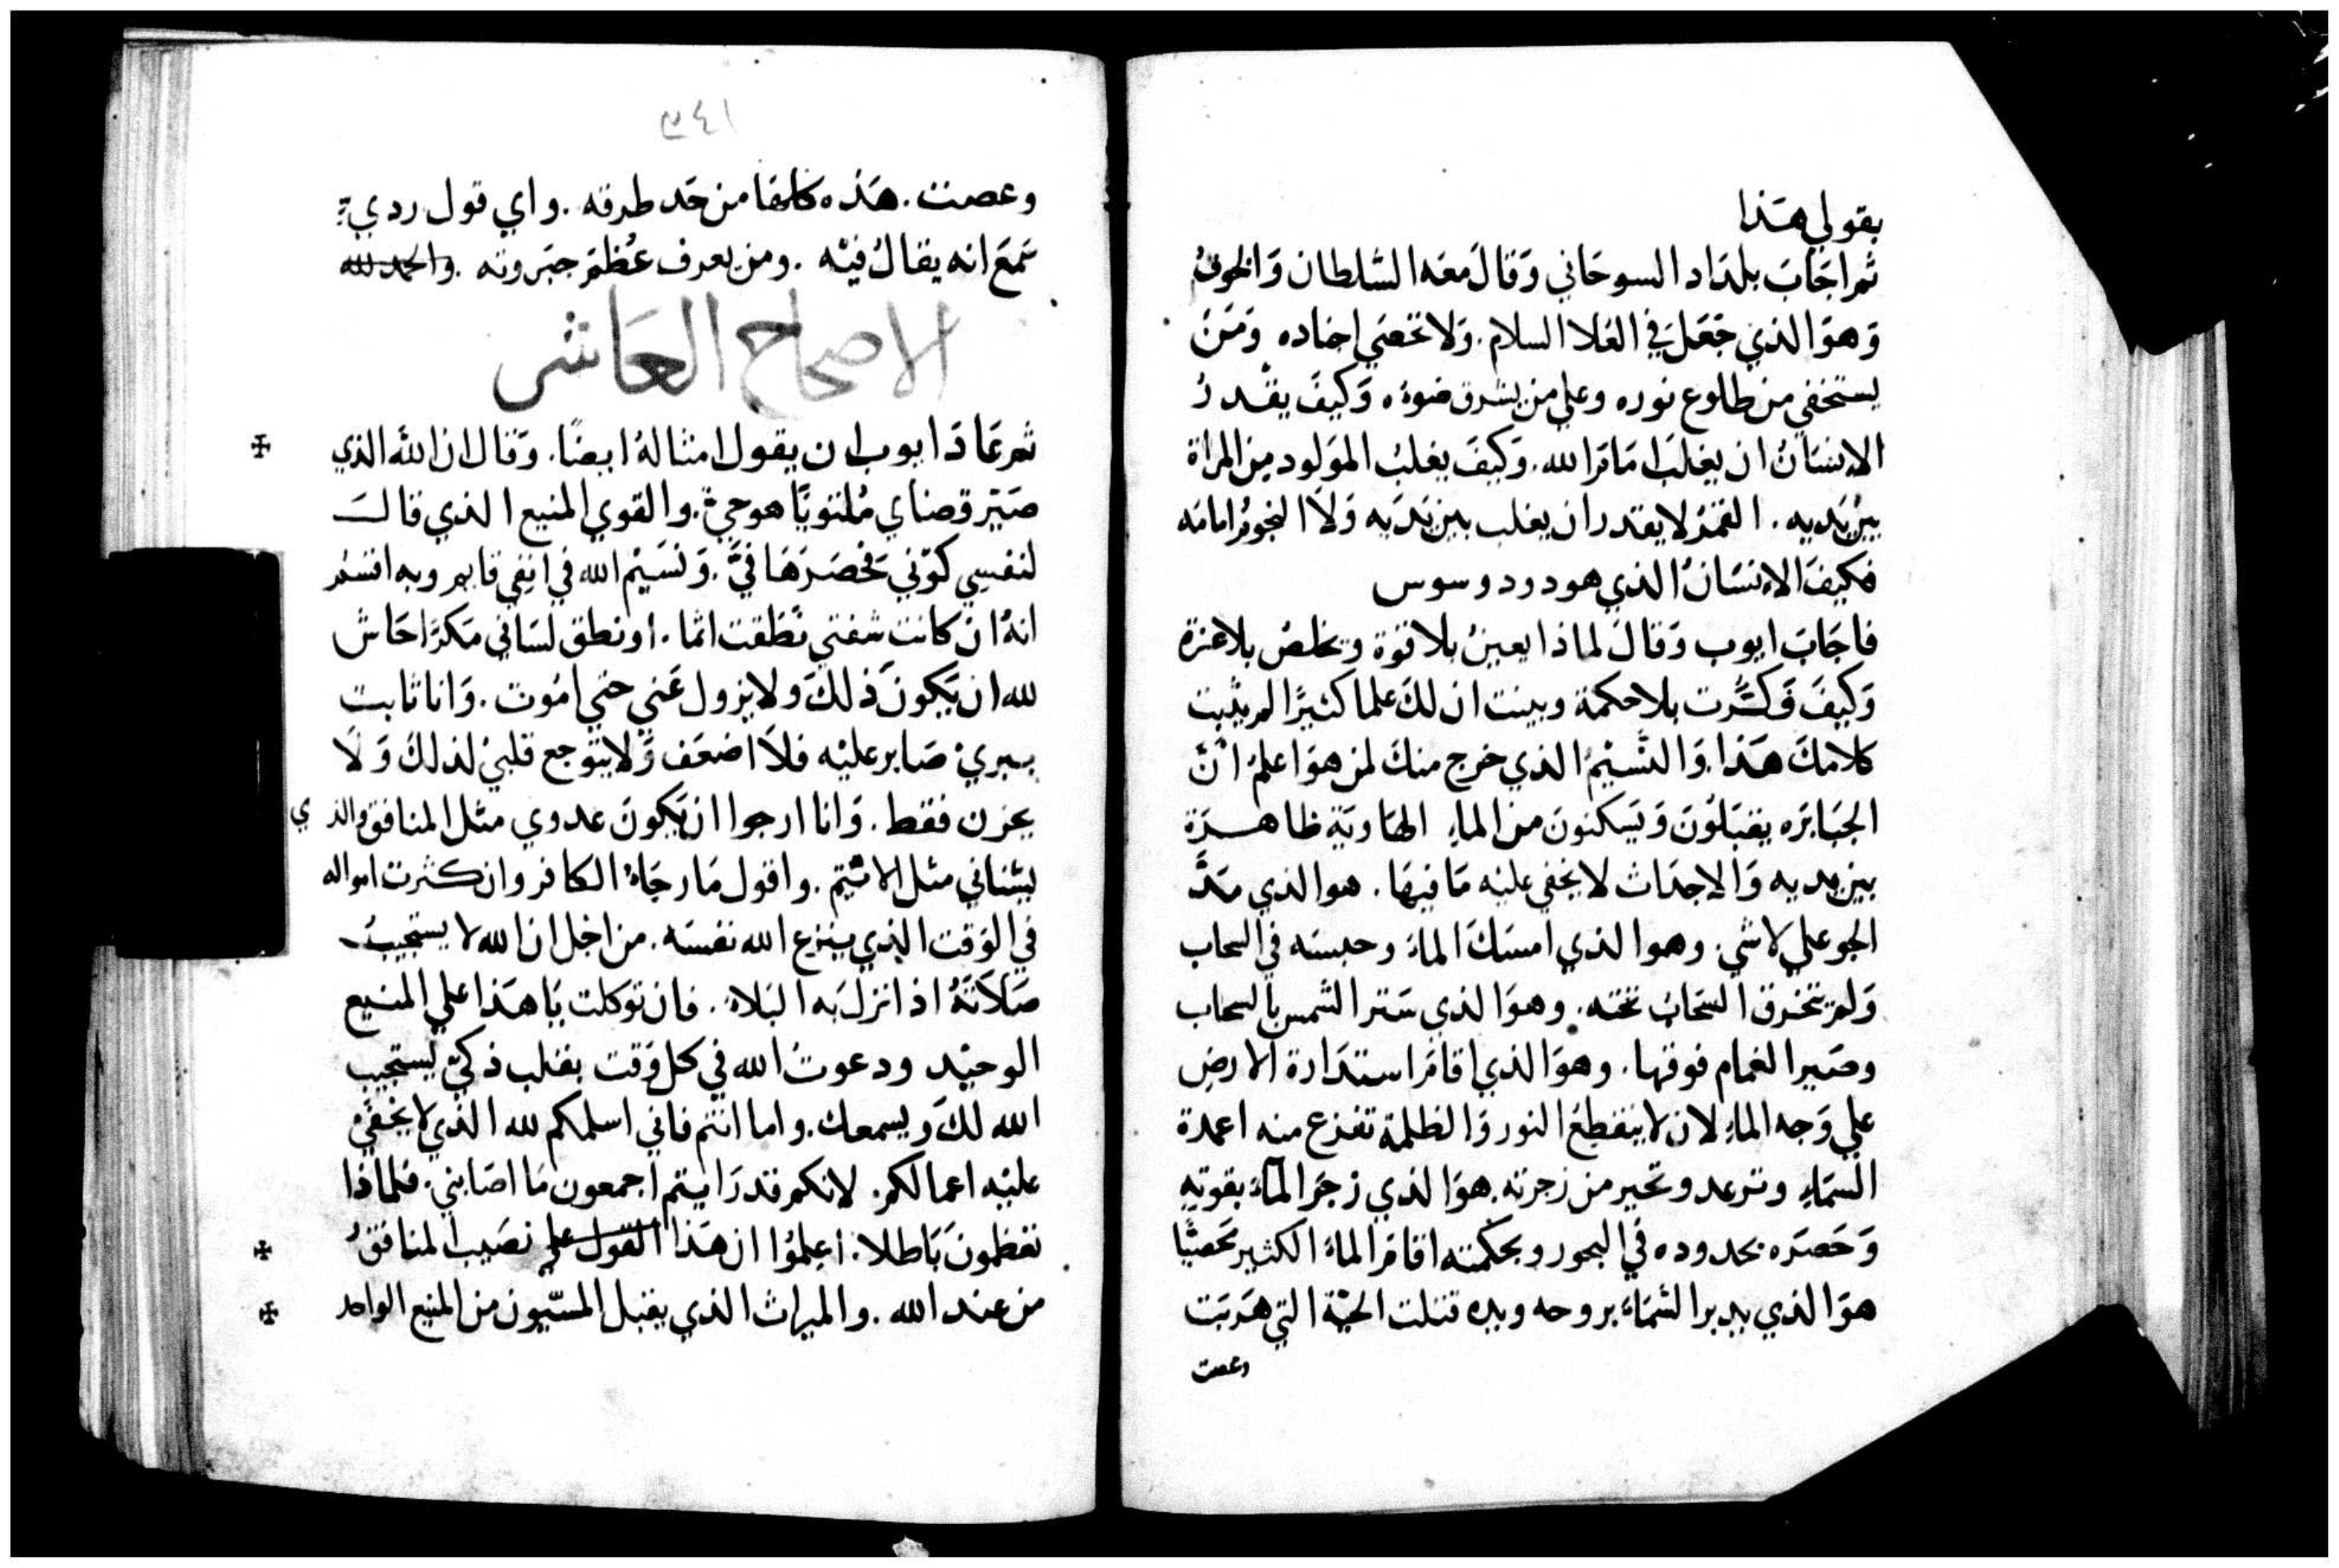 بقولي هذا
ثم اجاب بلداد السوحاني وقال معه السلطان والخوف
وهو الذي جعل في العلا السلام. ولا تحصي اجناده ومن
يستخفي من طلوع نوره وعلي من يشرق ضوءه وكيف يقدر
الانسان ان يغلب امام الله. وكيف يغلب المولود من المراة
بين يديه. القمر لا يقدر ان يغلب بين يديه ولا النجوم امامه
فكيف الانسان الذي هو دود وسوس
فاجاب ايوب وقال لماذا يعين بلا قوة ويخلص بلا عزة
وكيف فكرت بلا حكمة وبينت ان لك علما كثيرا لم يثبت
كلامك هذا. والنسيم الذي خرج منك لمن هو اعلم ان
الجبابره يقتلون ويسكنون من الماء الهاوية ظاهرة
بين يديه والاحداث لا يخفي عليه ما فيها. هو الذي مد
الجو علي لا شي. وهو الذي امسك الماء وحبسه في السحاب
ولم تتخرق السحاب تحته. وهو الذي ستر الشمس بالسحاب
وصير الغمام فوقها. وهو الذي اقام استدارة الارض
علي وجه الماء لان لا ينقطع النور والظلمة تفزع منه اعمدة
السماء وترعد وتحير من زجرته. هو الذي زجر الماء بقوته
وحصره بحدوده في البحور وبحكمته اقام الماء الكثير محصيا
هو الذي يدبر السماء بروحه وبيده قتلت الحية التي هربت
وعصت
٣٤١
وعصت. هذه كلها من حد طرقه. واي قول ردي
سمع انه يقال فيه. ومن يعرف عظم جبروته. والحمد لله
الاصحاح العاشر
ثم عاد ايوب ان يقول امثاله ايضا. وقال ان الله الذي
صير قضاي ملتويا هو حي. والقوي المنيع الذي قالت
لنفسي كوني فحصرها في. ونسيم الله في انفي قايم وبه اقسم
انه ان كانت شفتي نطقت اثما. او نطق لساني مكرا حاش
لله ان يكون ذلك ولا يزول عني حتي اموت. وانا ثابت
ببري صابر عليه فلا اضعف ولا يتوجع قلبي لذلك ولا
يحزن فقط. وانا ارجوا ان يكون عدوي مثل المنافق والذي
يشناني مثل الاثيم. واقول ما رجاء الكافر وان كثرت امواله
في الوقت الذي ينزع الله نفسه. من اجل ان الله لا يستجيب
صلاته اذا نزل به البلاء. فان توكلت يا هذا علي المنيع
الوحيد ودعوت الله في كل وقت بقلب ذكي يستجيب
الله لك ويسمعك. واما انتم فاني اسلمكم لله الذي لا يخفي
عليه اعمالكم. لانكم قد رايتم اجمعون ما اصابني. فلماذا
تعظمون باطلا. اعلموا ان هذا القول علي نصيب المنافق
من عند الله. والميراث الذي يقبل المسيون من المنيع الواحد